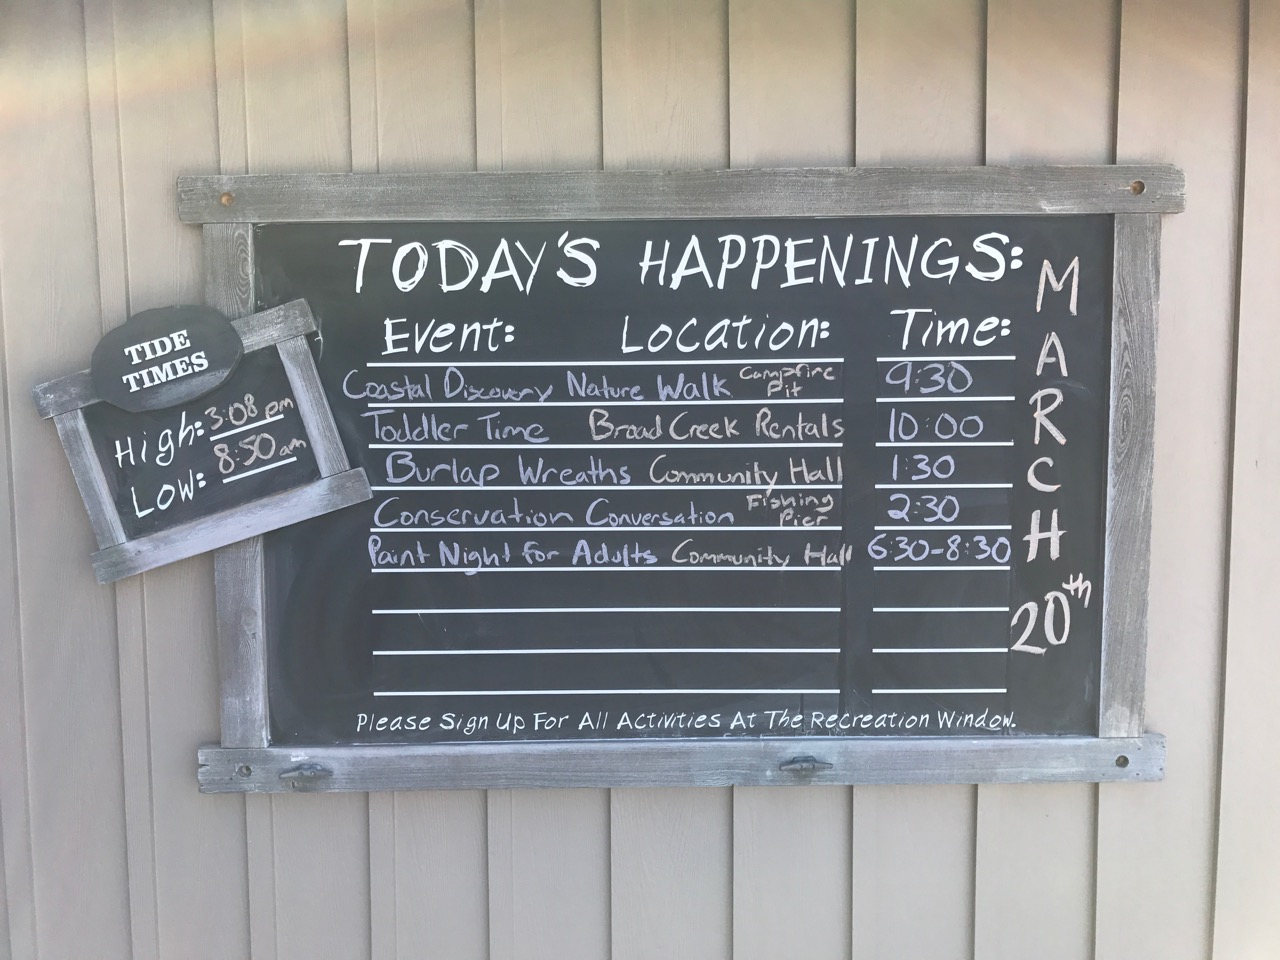 TODAY'S HAPPENINGS:
Event: Location: Time:
Coastal Discovery Nature Walk Campfire Pit 9:30
Toddler Time Broad Creek Rentals 10:00
Burlap Wreaths Community Hall 1:30
Conservation Conversation Fishing Pier 2:30
Paint Night for Adults Community Hall 6:30-8:30
Please Sign Up For All Activities At The Recreation Window.
MARCH
20th
TIDE
TIMES
High: 3:08 pm
Low: 8:50 am